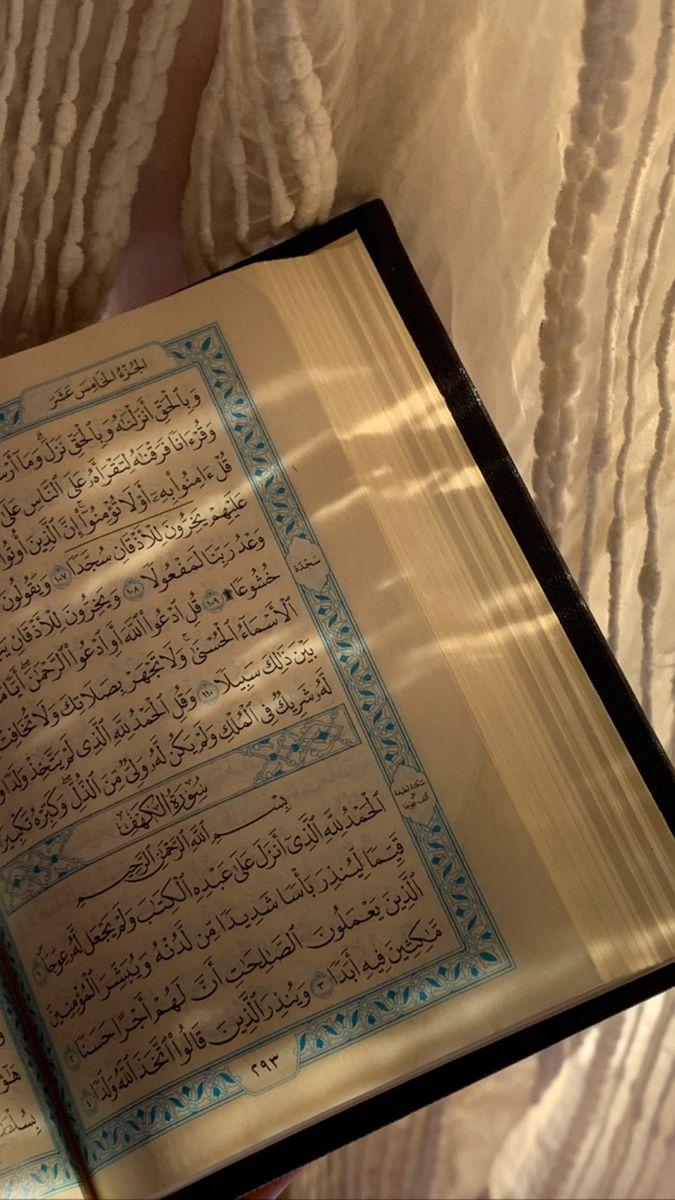 الجُزْءُ الخَامِسَ عَشَرَ
وَبِٱلْحَقِّ أَنزَلْنَٰهُ وَبِٱلْحَقِّ نَزَلَ ۗ وَمَآ
وَقُرْءَانًا فَرَقْنَٰهُ لِتَقْرَأَهُۥ عَلَى ٱلنَّاسِ عَلَىٰ
قُلْ ءَامِنُوا۟ بِهِۦٓ أَوْ لَا تُؤْمِنُوٓا۟ ۚ إِنَّ ٱلَّذِينَ أُوتُوا۟
عَلَيْهِمْ يَخِرُّونَ لِلْأَذْقَانِ سُجَّدًا ١٠٧ وَيَقُولُونَ
وَعْدُ رَبِّنَا لَمَفْعُولًا ١٠٨ وَيَخِرُّونَ لِلْأَذْقَانِ
خُشُوعًا ۩ ١٠٩ قُلِ ٱدْعُوا۟ ٱللَّهَ أَوِ ٱدْعُوا۟ ٱلرَّحْمَٰنَ ۖ أَيًّا مَّا
ٱلْأَسْمَآءُ ٱلْحُسْنَىٰ ۚ وَلَا تَجْهَرْ بِصَلَاتِكَ وَلَا تُخَافِتْ
بَيْنَ ذَٰلِكَ سَبِيلًا ١١٠ وَقُلِ ٱلْحَمْدُ لِلَّهِ ٱلَّذِى لَمْ يَتَّخِذْ وَلَدًا
لَّهُۥ شَرِيكٌ فِى ٱلْمُلْكِ وَلَمْ يَكُن لَّهُۥ وَلِىٌّ مِّنَ ٱلذُّلِّ ۖ وَكَبِّرْهُ تَكْبِيرًۢا
سَجْدَة
سُورَةُ الكَهْفِ
بِسْمِ ٱللَّهِ ٱلرَّحْمَٰنِ ٱلرَّحِيمِ
ٱلْحَمْدُ لِلَّهِ ٱلَّذِىٓ أَنزَلَ عَلَىٰ عَبْدِهِ ٱلْكِتَٰبَ وَلَمْ يَجْعَل لَّهُۥ عِوَجَاۜ ١
قَيِّمًا لِّيُنذِرَ بَأْسًا شَدِيدًا مِّن لَّدُنْهُ وَيُبَشِّرَ ٱلْمُؤْمِنِينَ
ٱلَّذِينَ يَعْمَلُونَ ٱلصَّٰلِحَٰتِ أَنَّ لَهُمْ أَجْرًا حَسَنًا ٢
مَّٰكِثِينَ فِيهِ أَبَدًا ٣ وَيُنذِرَ ٱلَّذِينَ قَالُوا۟ ٱتَّخَذَ ٱللَّهُ وَلَدًا ٤
سكتة لطيفة
على
ألف عوجا
٢٩٣